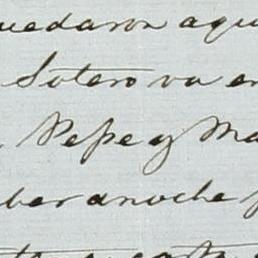 uedaron aqu
Sotero va en
Pepe y Ma
ber anoche